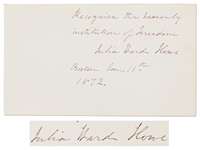 Recognise the heavenly
institution of Freedom.
Julia Ward Howe
Boston Jan. 11th
1872.
Julia Ward Howe